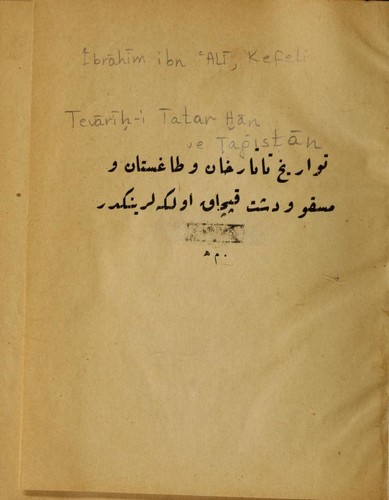 İbrāhīm ibn ʿAlī, Kefeli
Tevārīḫ-i Tatar Ḫān
ve Ṭaġısṭān
تواریخ تاتارخان و طاغستان و
مسقو و دشت قپچاق اولکه لرینکدر
م